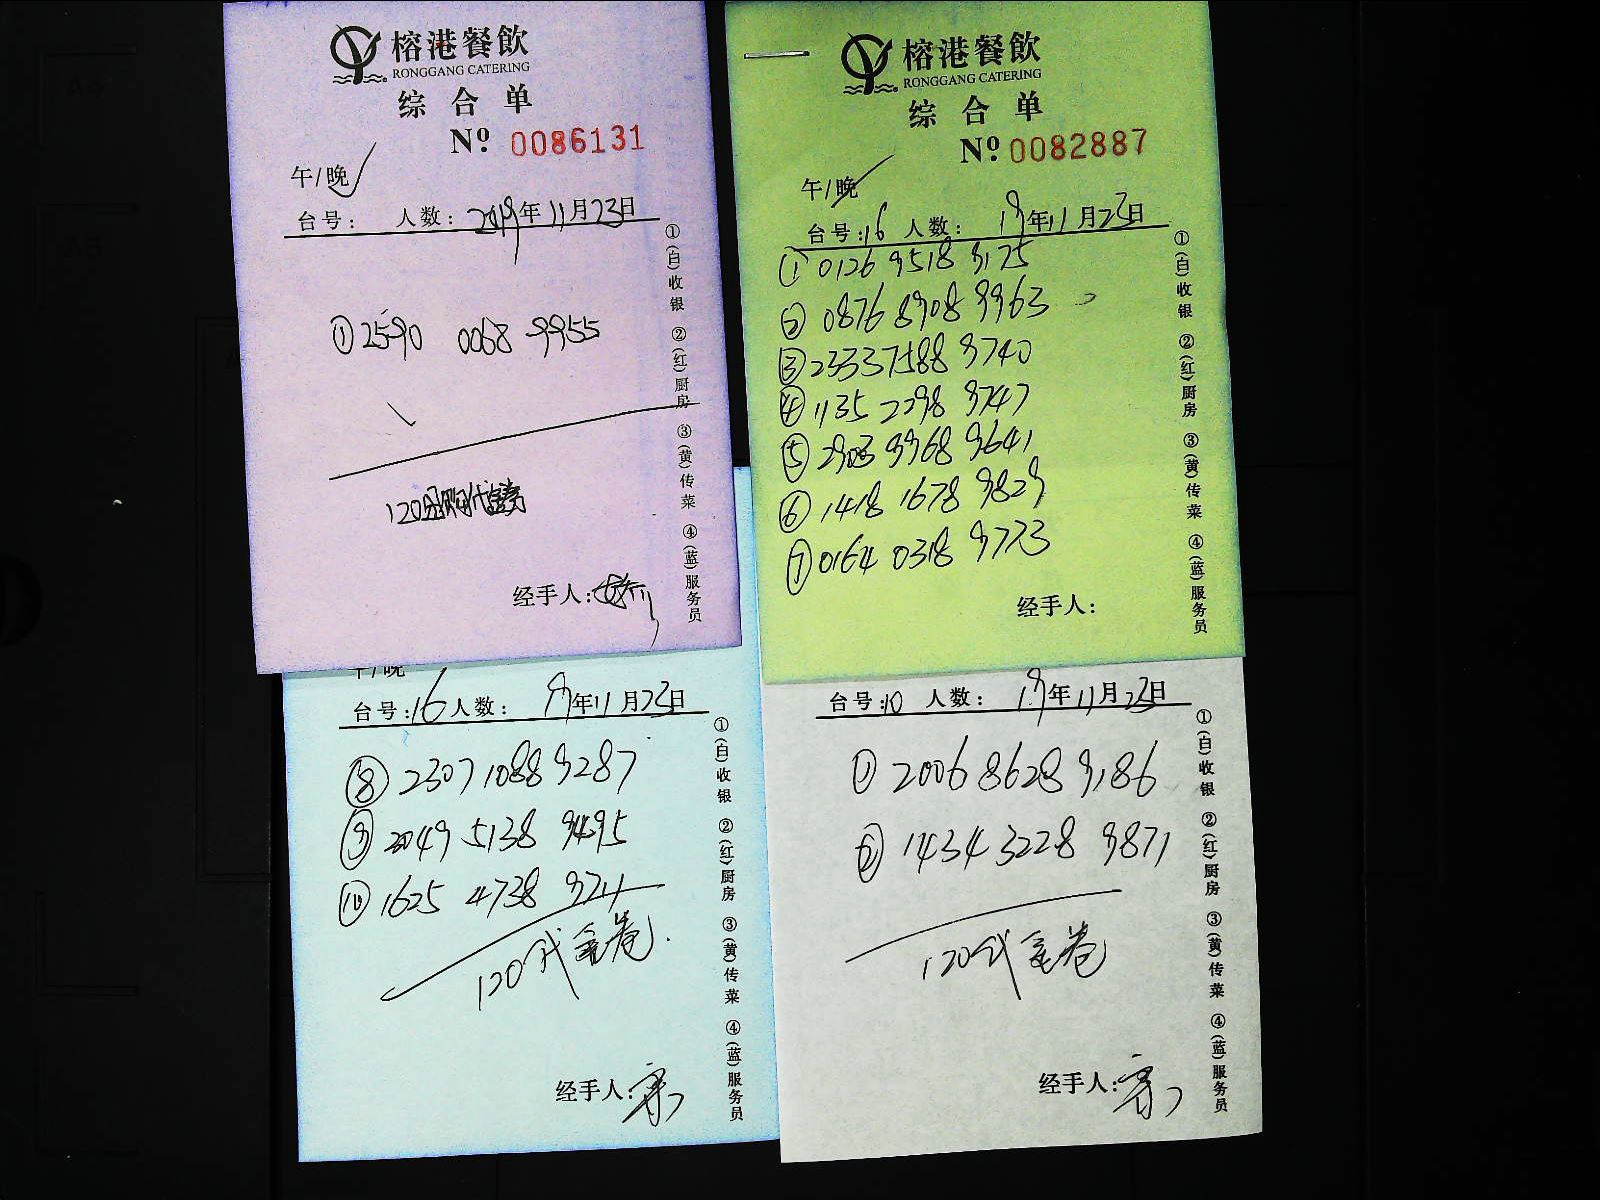 榕港餐飲
RONGGANG CATERING
综合单
Nº 0086131
午/晚
台号: 人数: 2019年11月23日
① 2590 0068 9955
120代金券
经手人:
①(白)收银 ②(红)厨房 ③(黄)传菜 ④(蓝)服务员
榕港餐飲
RONGGANG CATERING
综合单
Nº 0082887
午/晚
台号:16 人数: 19年11月23日
① 0126 9518 9175
② 0876 8908 9963
③ 2333 7588 9740
④ 1135 2298 9747
⑤ 2903 9968 9641
⑥ 1418 1678 9829
⑦ 0164 0318 9773
经手人:
①(白)收银 ②(红)厨房 ③(黄)传菜 ④(蓝)服务员
午/晚
台号:16 人数: 19年11月23日
⑧ 2307 1088 9287
⑨ 2049 5138 9495
⑩ 1625 4738
120代金卷
经手人:
①(白)收银 ②(红)厨房 ③(黄)传菜 ④(蓝)服务员
台号:10 人数: 19年11月23日
① 2006 8628 9186
② 1434 3228 9871
120代金卷
经手人:
①(白)收银 ②(红)厨房 ③(黄)传菜 ④(蓝)服务员